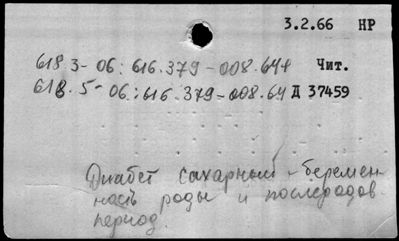 3.2.66 НР
618.3-06:616.379-008.64+ Чит.
618.5-06:616.379-008.64 Д 37459
Диабет сахарный - беремен-
ность роды и послеродов.
период.